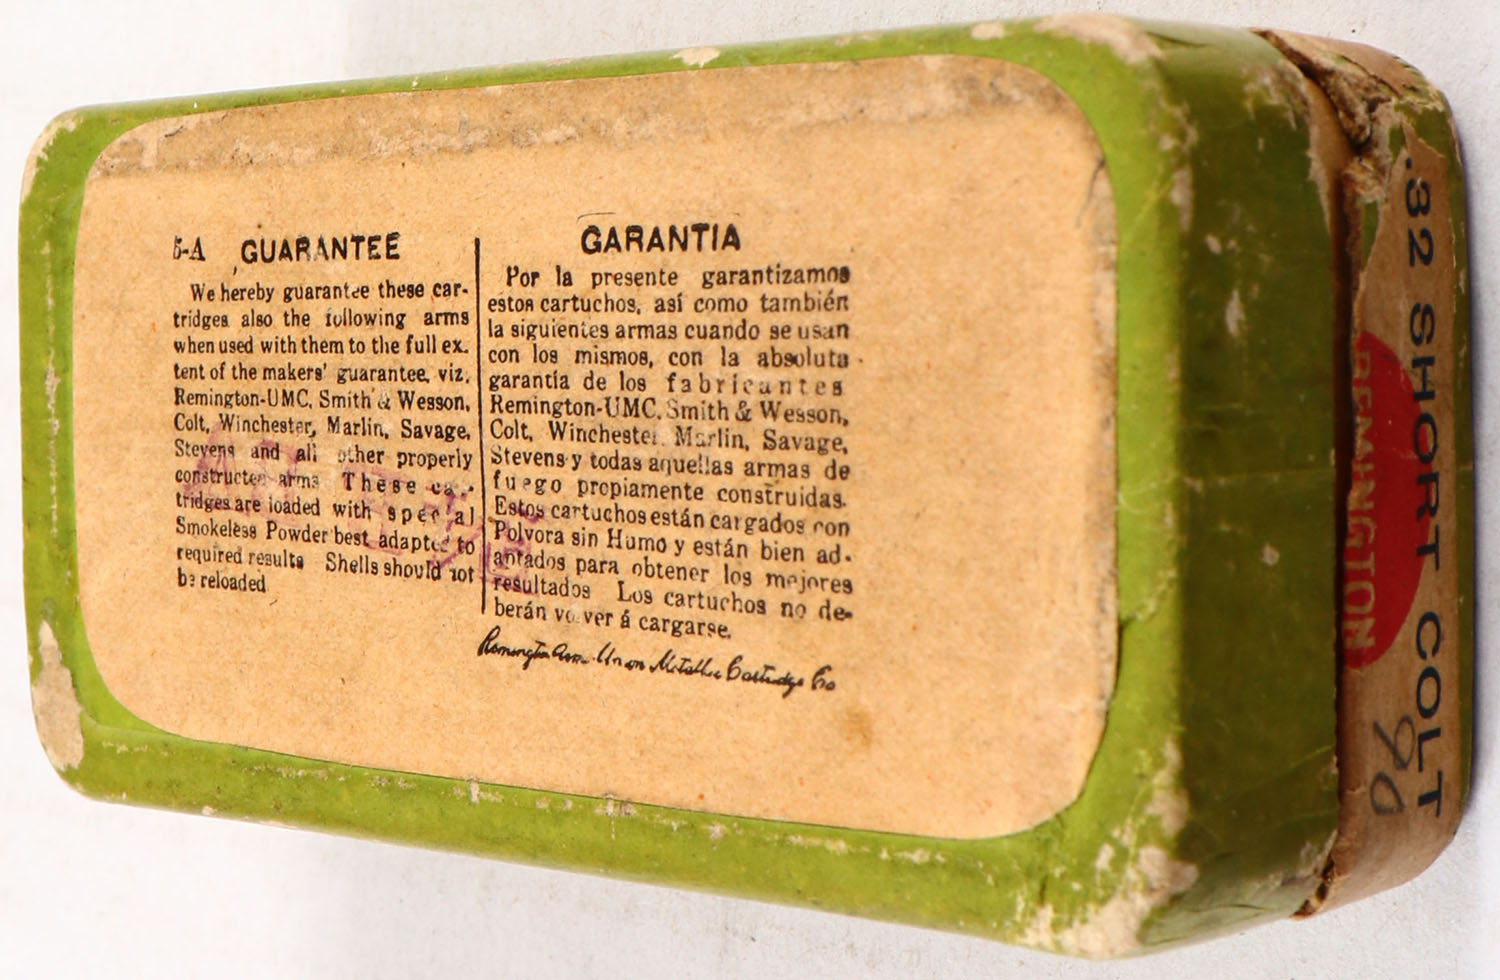 5-A GUARANTEE
We hereby guarantee these car-
tridges also the following arms
when used with them to the full ex-
tent of the makers' guarantee, viz.
Remington-UMC, Smith & Wesson,
Colt, Winchester, Marlin, Savage,
Stevens and all other properly
constructed arms These car-
tridges are loaded with special
Smokeless Powder best adapted to
required results Shells should not
be reloaded
GARANTIA
Por la presente garantizamos
estos cartuchos, así como también
la siguientes armas cuando se usan
con los mismos, con la absoluta
garantía de los fabricantes
Remington-UMC, Smith & Wesson,
Colt, Winchester, Marlin, Savage,
Stevens y todas aquellas armas de
fuego propiamente construidas.
Estos cartuchos están cargados con
Polvora sin Humo y están bien ad-
aptados para obtener los mejores
resultados Los cartuchos no de-
berán volver á cargarse.
Remington Arms-Union Metallic Cartridge Co
.32 SHORT COLT
REMINGTON
90